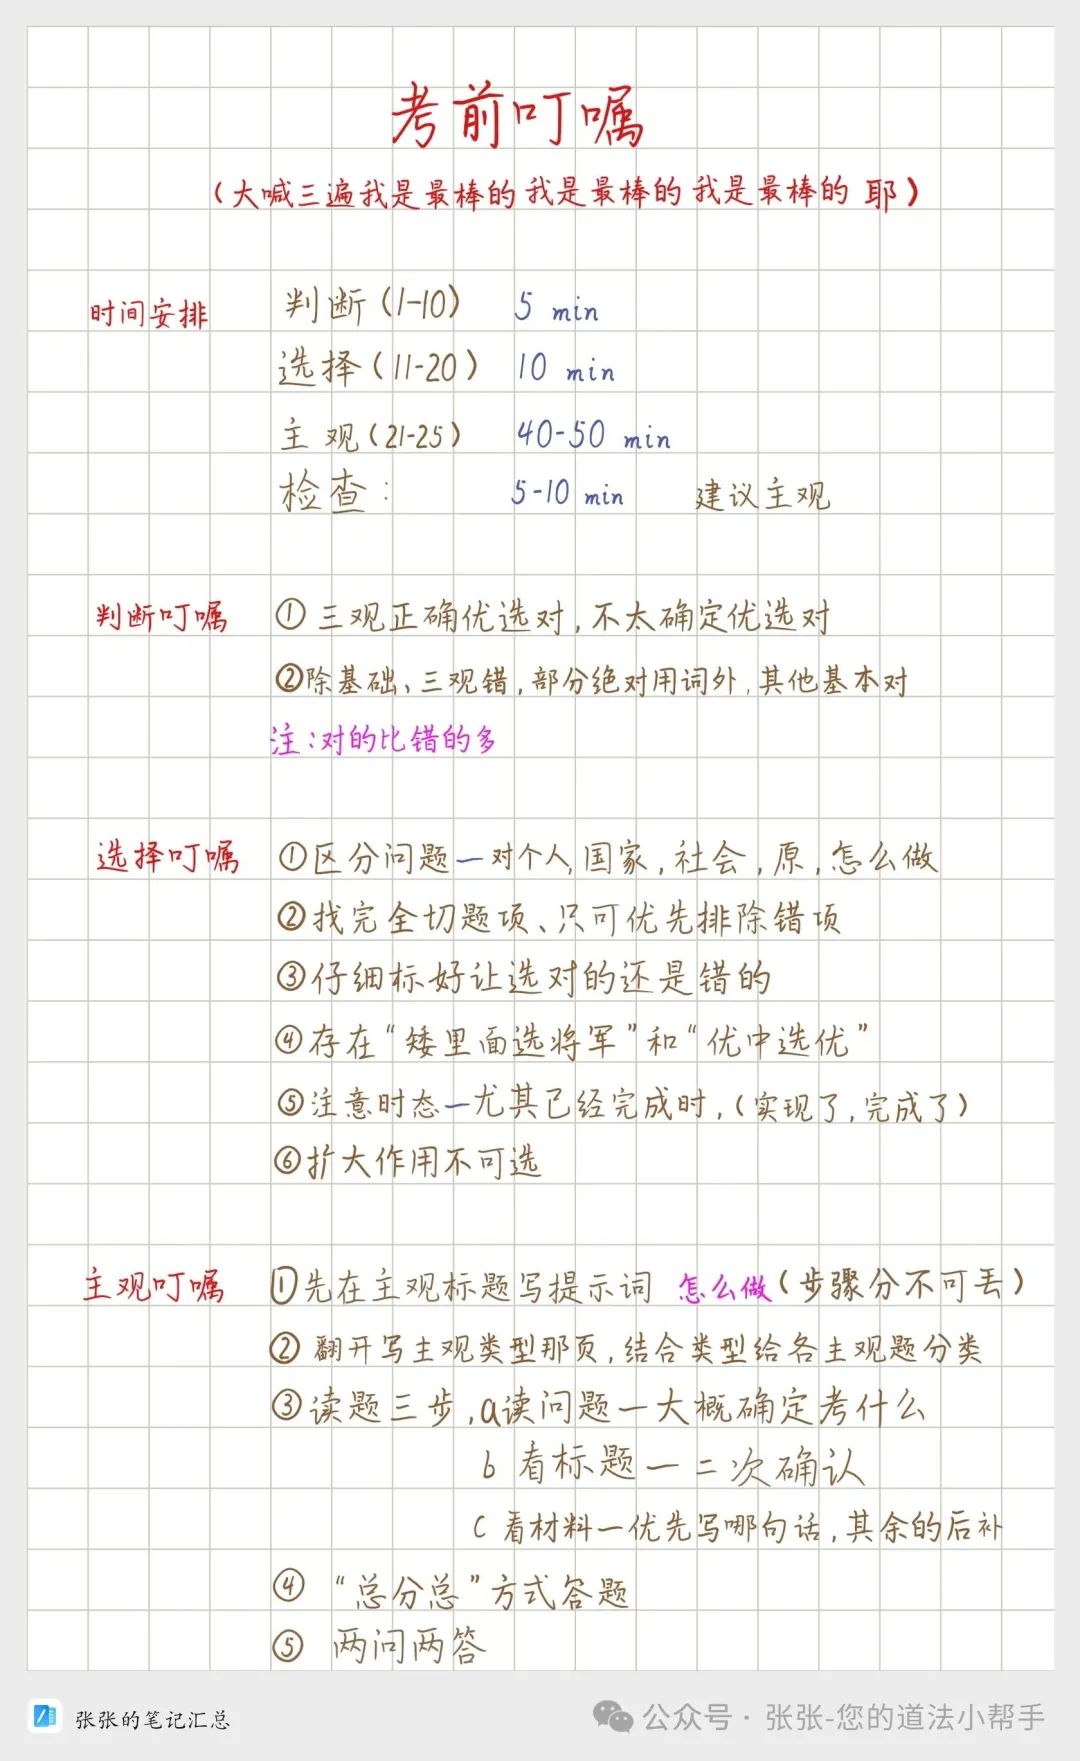 考前叮嘱
(大喊三遍我是最棒的 我是最棒的 我是最棒的 耶)
时间安排 判断(1-10) 5 min
选择(11-20) 10 min
主观(21-25) 40-50 min
检查: 5-10 min 建议主观
判断叮嘱 ①三观正确优选对,不太确定优选对
②除基础、三观错,部分绝对用词外,其他基本对
注:对的比错的多
选择叮嘱 ①区分问题一对个人,国家,社会,原,怎么做
②找完全切题项、只可优先排除错项
③仔细标好让选对的还是错的
④存在“矮里面选将军”和“优中选优”
⑤注意时态一尤其已经完成时,(实现了,完成了)
⑥扩大作用不可选
主观叮嘱 ①先在主观标题写提示词 怎么做(步骤分不可丢)
② 翻开写主观类型那页,结合类型给各主观题分类
③读题三步,a读问题一大概确定考什么
b 看标题一二次确认
c 看材料一优先写哪句话,其余的后补
④ “总分总”方式答题
⑤ 两问两答
张张的笔记汇总
公众号·张张-您的道法小帮手